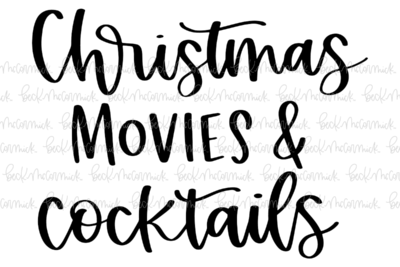 Christmas
MOVIES &
cocktails